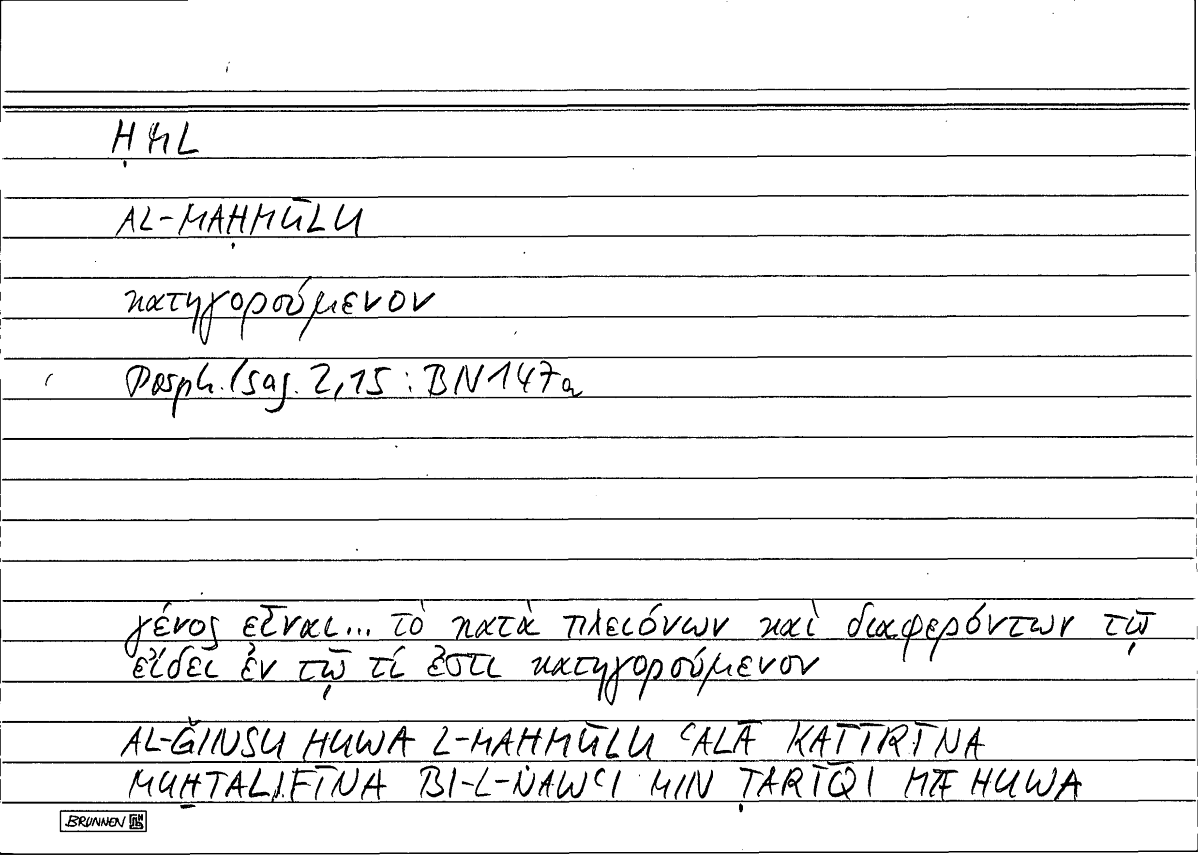 ḤML
AL-MAḤMŪLU
κατηγορούμενον
Porph. Isag. 2,15 : BN 147a
γένος εἶναι... τὸ κατὰ πλειόνων καὶ διαφερόντων τῷ
εἴδει ἐν τῷ τί ἐστι κατηγορούμενον
AL-ǦINSU HUWA L-MAHMŪLU ʿALĀ KAṮĪRĪNA
MUḪTALIFĪNA BI-L-NAWʿI MIN ṬARĪQI MĀ HUWA
BRUNNEN